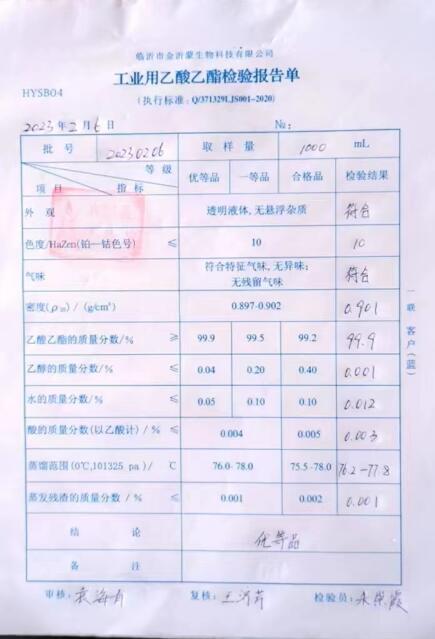 临沂市金沂蒙生物科技有限公司
工业用乙酸乙酯检验报告单
HYSB04
(执行标准: Q/371329LJS001-2020)
2023年2月6日 №:
批号 20230206 取样量 1000 mL
等级
项目 指标 优等品 一等品 合格品 检验结果
外观 透明液体,无悬浮杂质 符合
色度/HaZen(铂—钴色号) ≤ 10 10
气味 符合特征气味,无异味;
无残留气味 符合
密度(ρ20) / (g/cm³) 0.897-0.902 0.901
乙酸乙酯的质量分数/% ≥ 99.9 99.5 99.2 99.9
乙醇的质量分数/% ≤ 0.04 0.20 0.40 0.001
水的质量分数/% ≤ 0.05 0.10 0.10 0.012
酸的质量分数(以乙酸计) / % ≤ 0.004 0.005 0.003
蒸馏范围(0℃,101325 pa) / ℃ 76.0-78.0 75.5-78.0 76.2-77.8
蒸发残渣的质量分数 / % ≤ 0.001 0.002 0.001
结论 优等品
备注
审核: 复核: 检验员:
一联 客户(蓝)